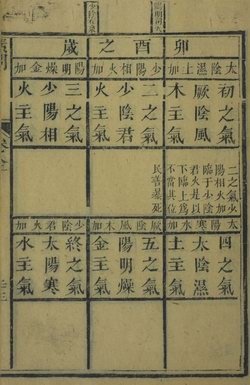 陽明司天
少陰在泉
卯酉之歲
太陰濕土加
初之氣
厥陰風
木主氣
少陽相火加
二之氣
少陰君
火主氣
陽明燥金加
三之氣
少陽相
火主氣
二之氣少
陽相火加
臨于少陰
君火是以
下臨上爲
不當其位
民善暴死
太陽寒水加
四之氣
太陰濕
土主氣
厥陰風木加
五之氣
陽明燥
金主氣
少陰君火加
終之氣
太陽寒
水主氣